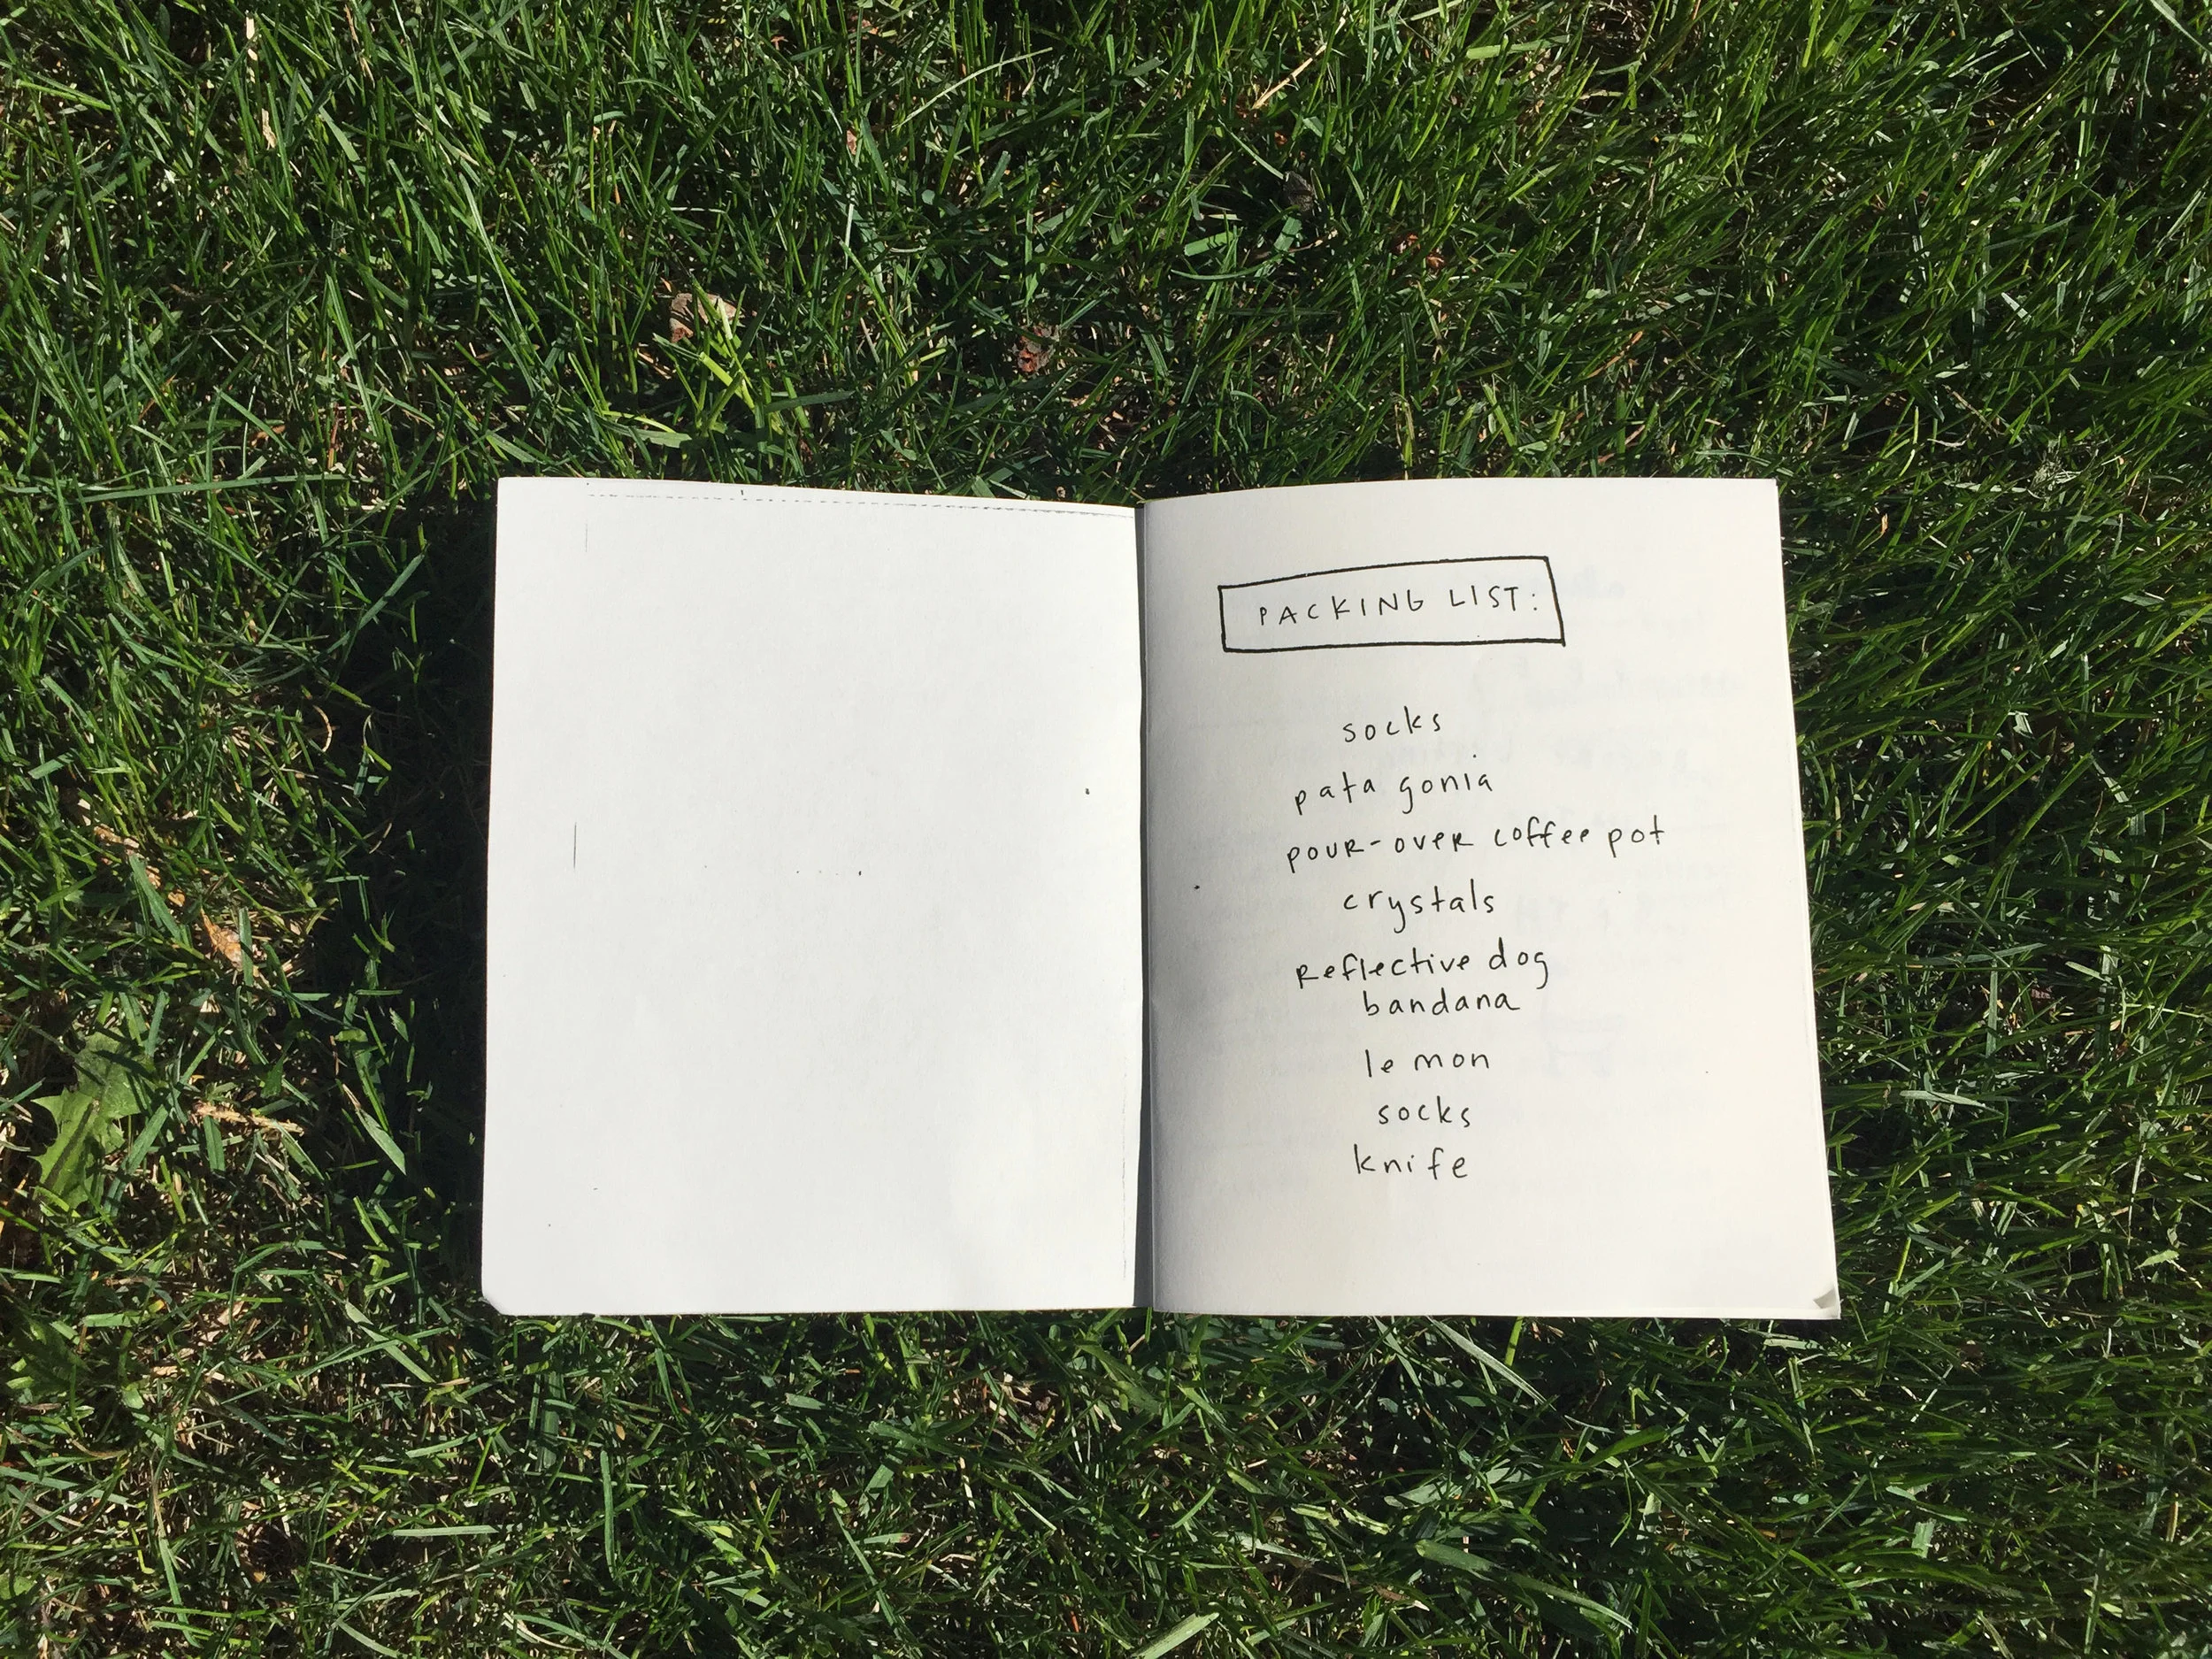 PACKING LIST:
socks
patagonia
pour-over coffee pot
crystals
Reflective dog
bandana
lemon
socks
knife